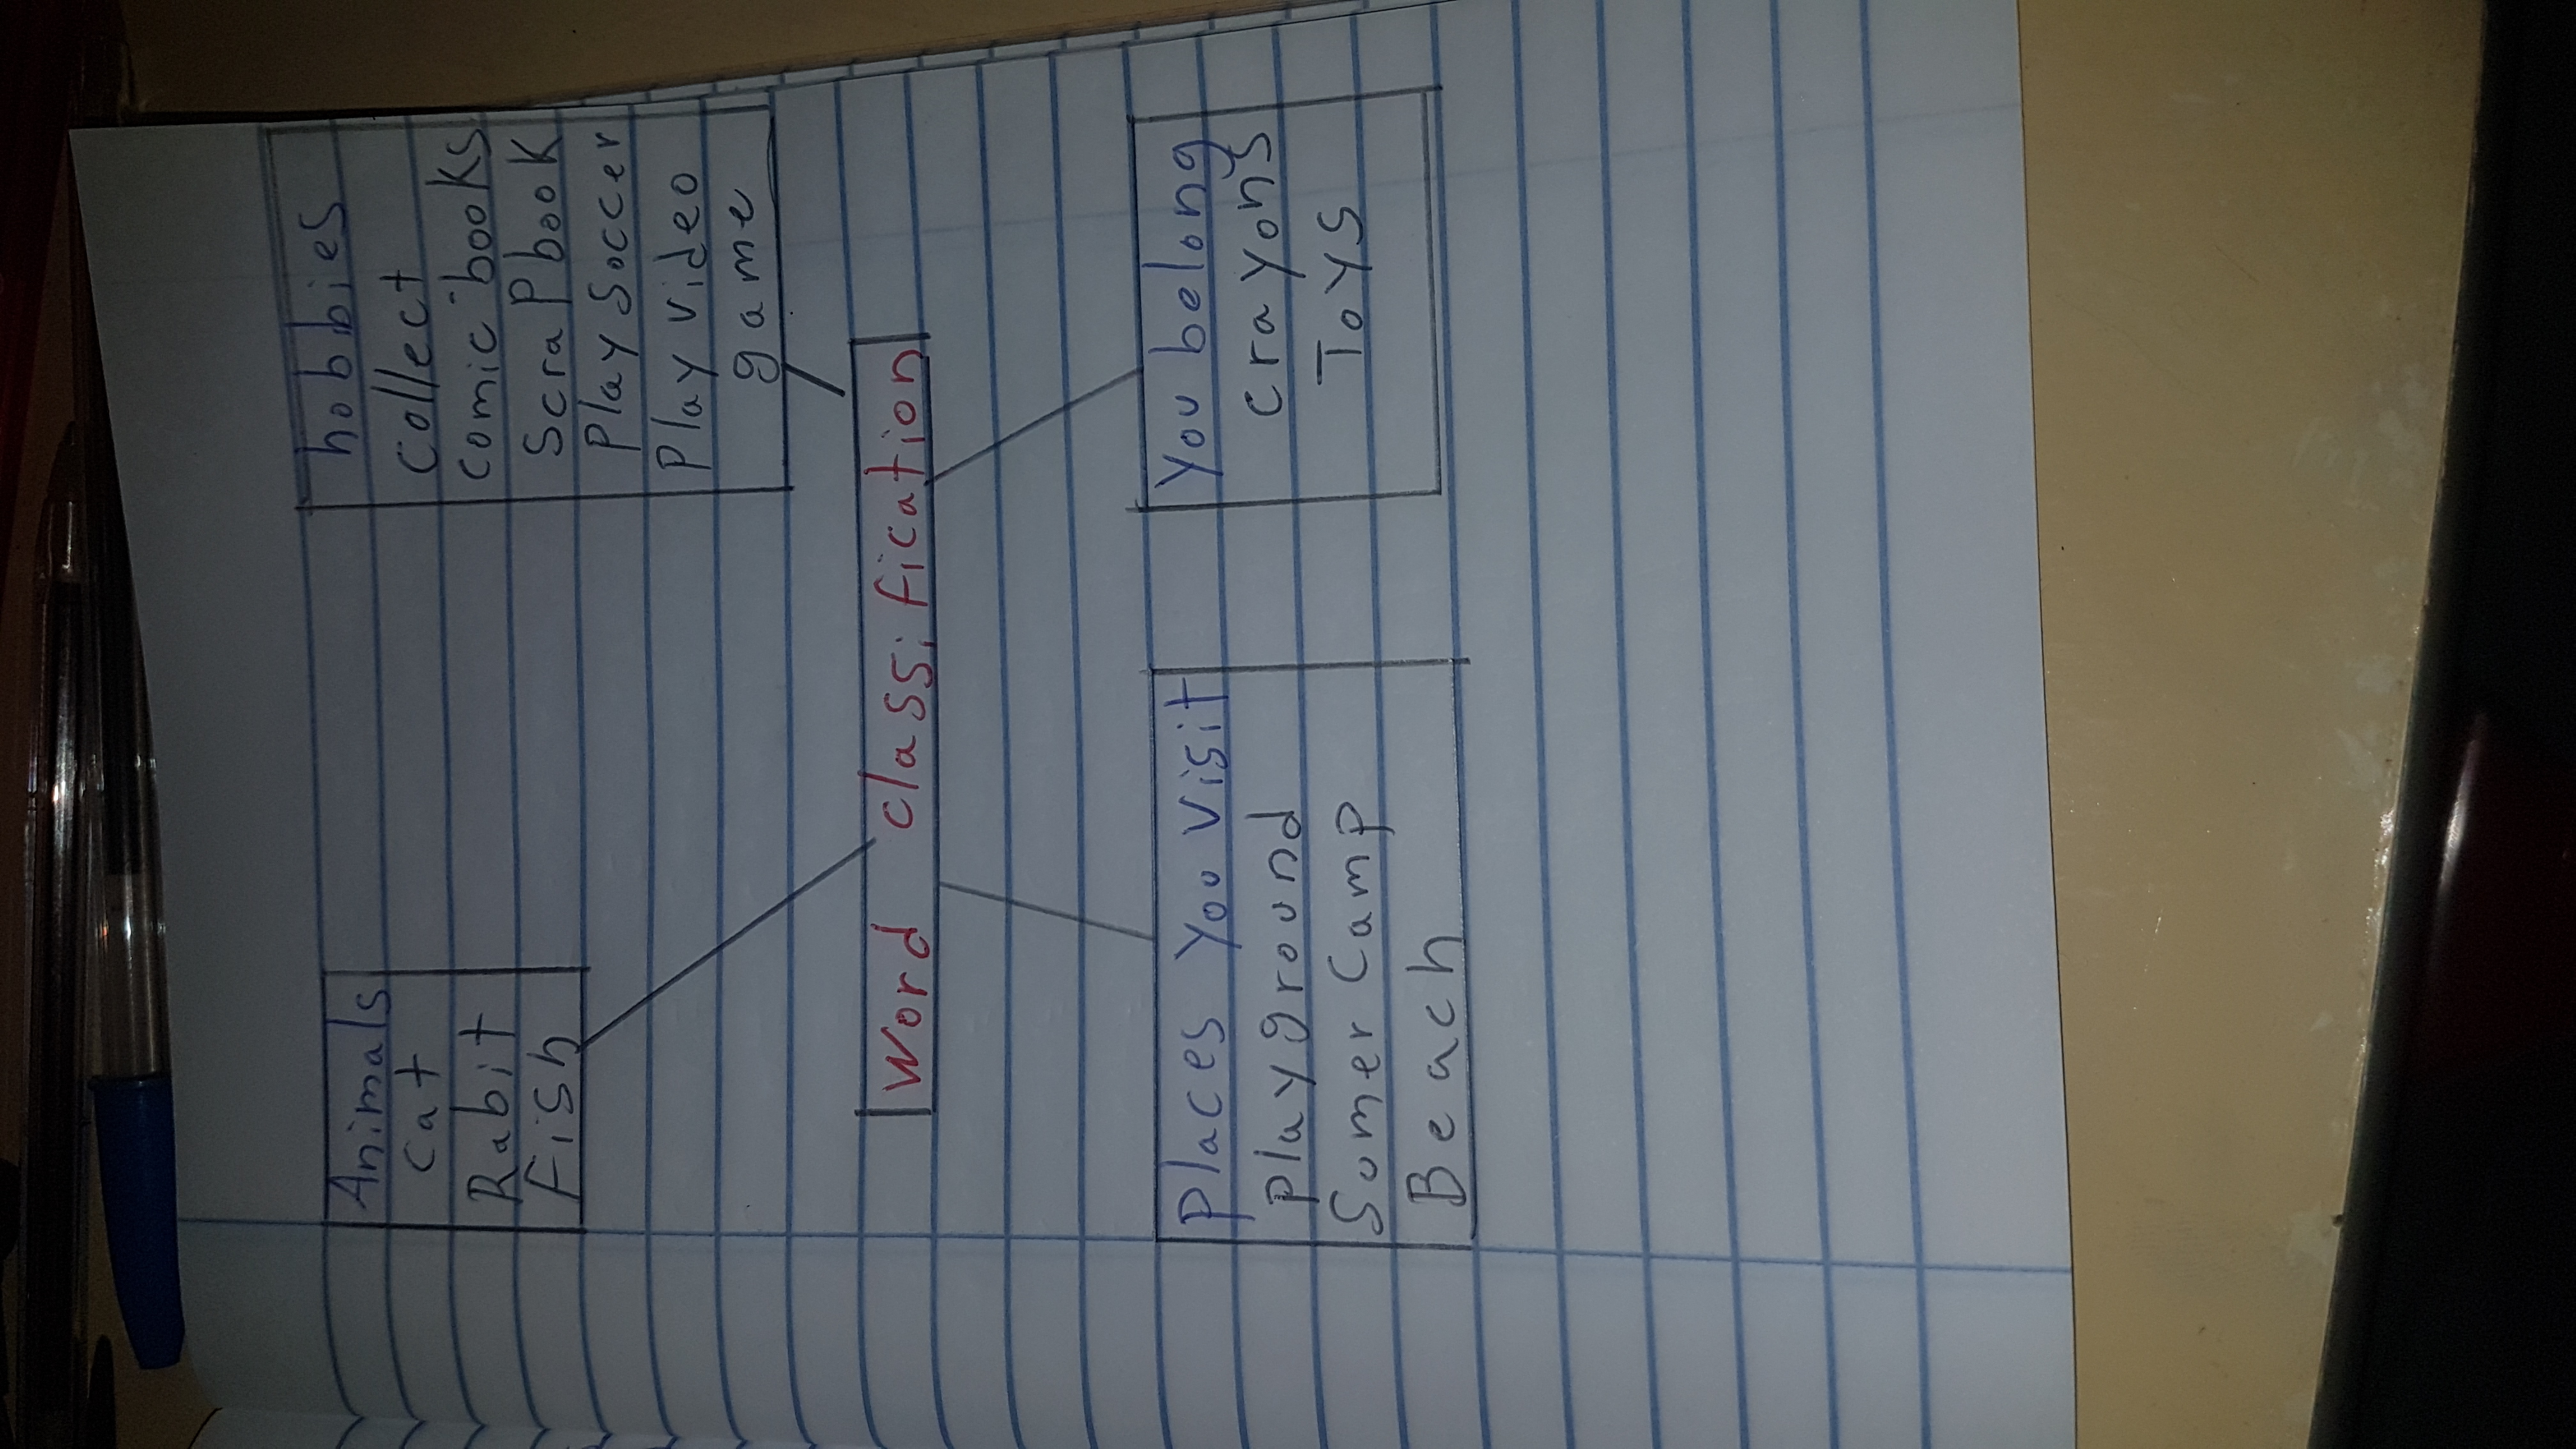 Animals
cat
Rabit
Fish
hobbies
collect
comic books
Scrapbook
Play Soccer
Play video
game
Word classification
Places you visit
playground
Somer Camp
Beach
You belong
crayons
Toys